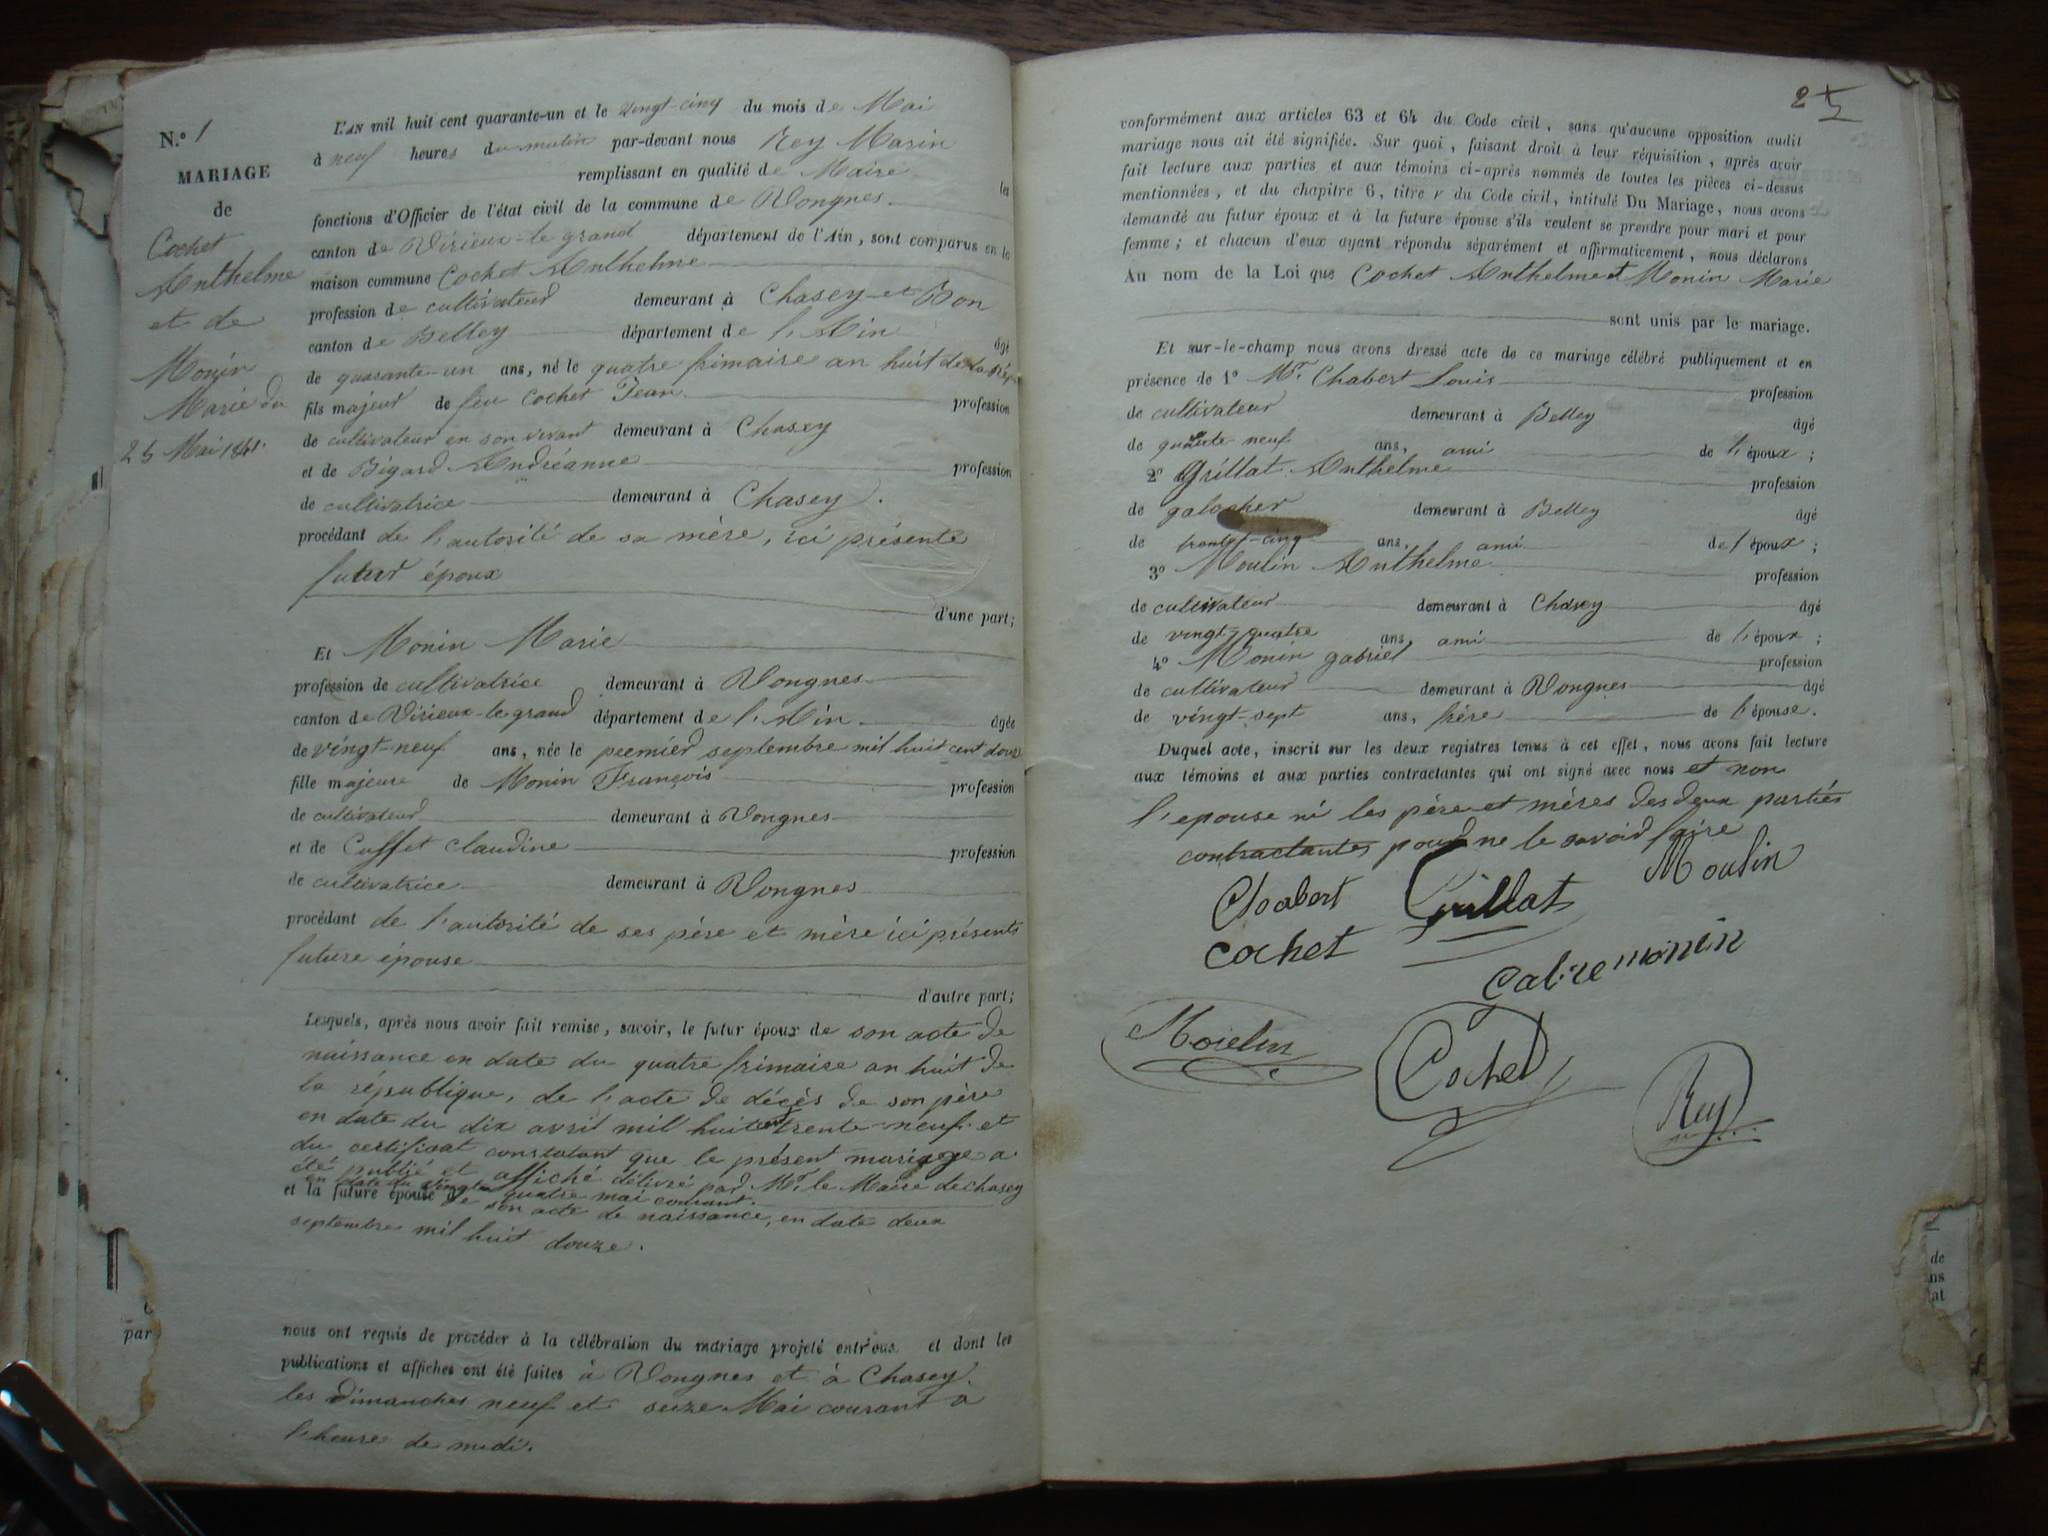 N.º 1
MARIAGE
de
Cochet
Anthelme
et de
Monin
Marie du
25 Mai 1841.
L'AN mil huit cent quarante-un et le vingt-cinq du mois de Mai
à neuf heures du matin par-devant nous Rey Marin
remplissant en qualité de Maire les
fonctions d'Officier de l'état civil de la commune de Vongnes
canton de Virieux-le-grand département de l'Ain, sont comparus en la
maison commune Cochet Anthelme
profession de cultivateur demeurant à Chasey-et-Bon
canton de Belley département de l'Ain âgé
de quarante-un ans, né le quatre frimaire an huit de la Rép.
fils majeur de feu Cochet Jean profession
de cultivateur en son vivant demeurant à Chasey
et de Bigard Andréanne profession
de cultivatrice demeurant à Chasey.
procédant de l'autorité de sa mère, ici présente
futur époux
d'une part;
Et Monin Marie
profession de cultivatrice demeurant à Vongnes
canton de Virieux-le-grand département de l'Ain. âgée
de vingt-neuf ans, née le premier septembre mil huit cent douze
fille majeure de Monin François profession
de cultivateur demeurant à Vongnes
et de Cuffet Claudine profession
de cultivatrice demeurant à Vongnes
procédant de l'autorité de ses père et mère ici présents
future épouse
d'autre part;
Lesquels, après nous avoir fait remise, savoir, le futur époux de son acte de
naissance en date du quatre frimaire an huit de
la république, de l'acte de décès de son père
en date du dix avril mil huit cent trente-neuf et
du certificat constatant que le présent mariage a
été publié et affiché délivré par Mr. le Maire de chasey
en date du vingt quatre mai courant.
et la future épouse de son acte de naissance, en date deux
septembre mil huit douze.
nous ont requis de procéder à la célébration du mariage projeté entr'eux et dont les
publications et affiches ont été faites à Vongnes et à Chasey.
les dimanches neuf et seize Mai courant à
l'heure de midi.
2
conformément aux articles 63 et 64 du Code civil, sans qu'aucune opposition audit
mariage nous ait été signifiée. Sur quoi, faisant droit à leur réquisition, après avoir
fait lecture aux parties et aux témoins ci-après nommés de toutes les pièces ci-dessus
mentionnées, et du chapitre 6, titre v du Code civil, intitulé Du Mariage, nous avons
demandé au futur époux et à la future épouse s'ils veulent se prendre pour mari et pour
femme; et chacun d'eux ayant répondu séparément et affirmativement, nous déclarons
Au nom de la Loi que Cochet Anthelme et Monin Marie
sont unis par le mariage.
Et sur-le-champ nous avons dressé acte de ce mariage célébré publiquement et en
présence de 1º Mr. Chabert Louis profession
de cultivateur demeurant à Belley âgé
de quarante-neuf ans, ami de l'époux;
2º Grillat Anthelme profession
de galocher demeurant à Belley âgé
de trente-cinq ans, ami de l'époux;
3º Moulin Anthelme profession
de cultivateur demeurant à Chasey âgé
de vingt-quatre ans, ami de l'époux;
4º Monin gabriel profession
de cultivateur demeurant à Vongnes âgé
de vingt-sept ans, frère de l'épouse.
Duquel acte, inscrit sur les deux registres tenus à cet effet, nous avons fait lecture
aux témoins et aux parties contractantes qui ont signé avec nous et non
l'epouse ni les père et mères des deux parties
contractantes pour ne le savoir faire
Chabert Grillat Moulin
cochet
monin
Cochet
Rey
de
ns
at
par